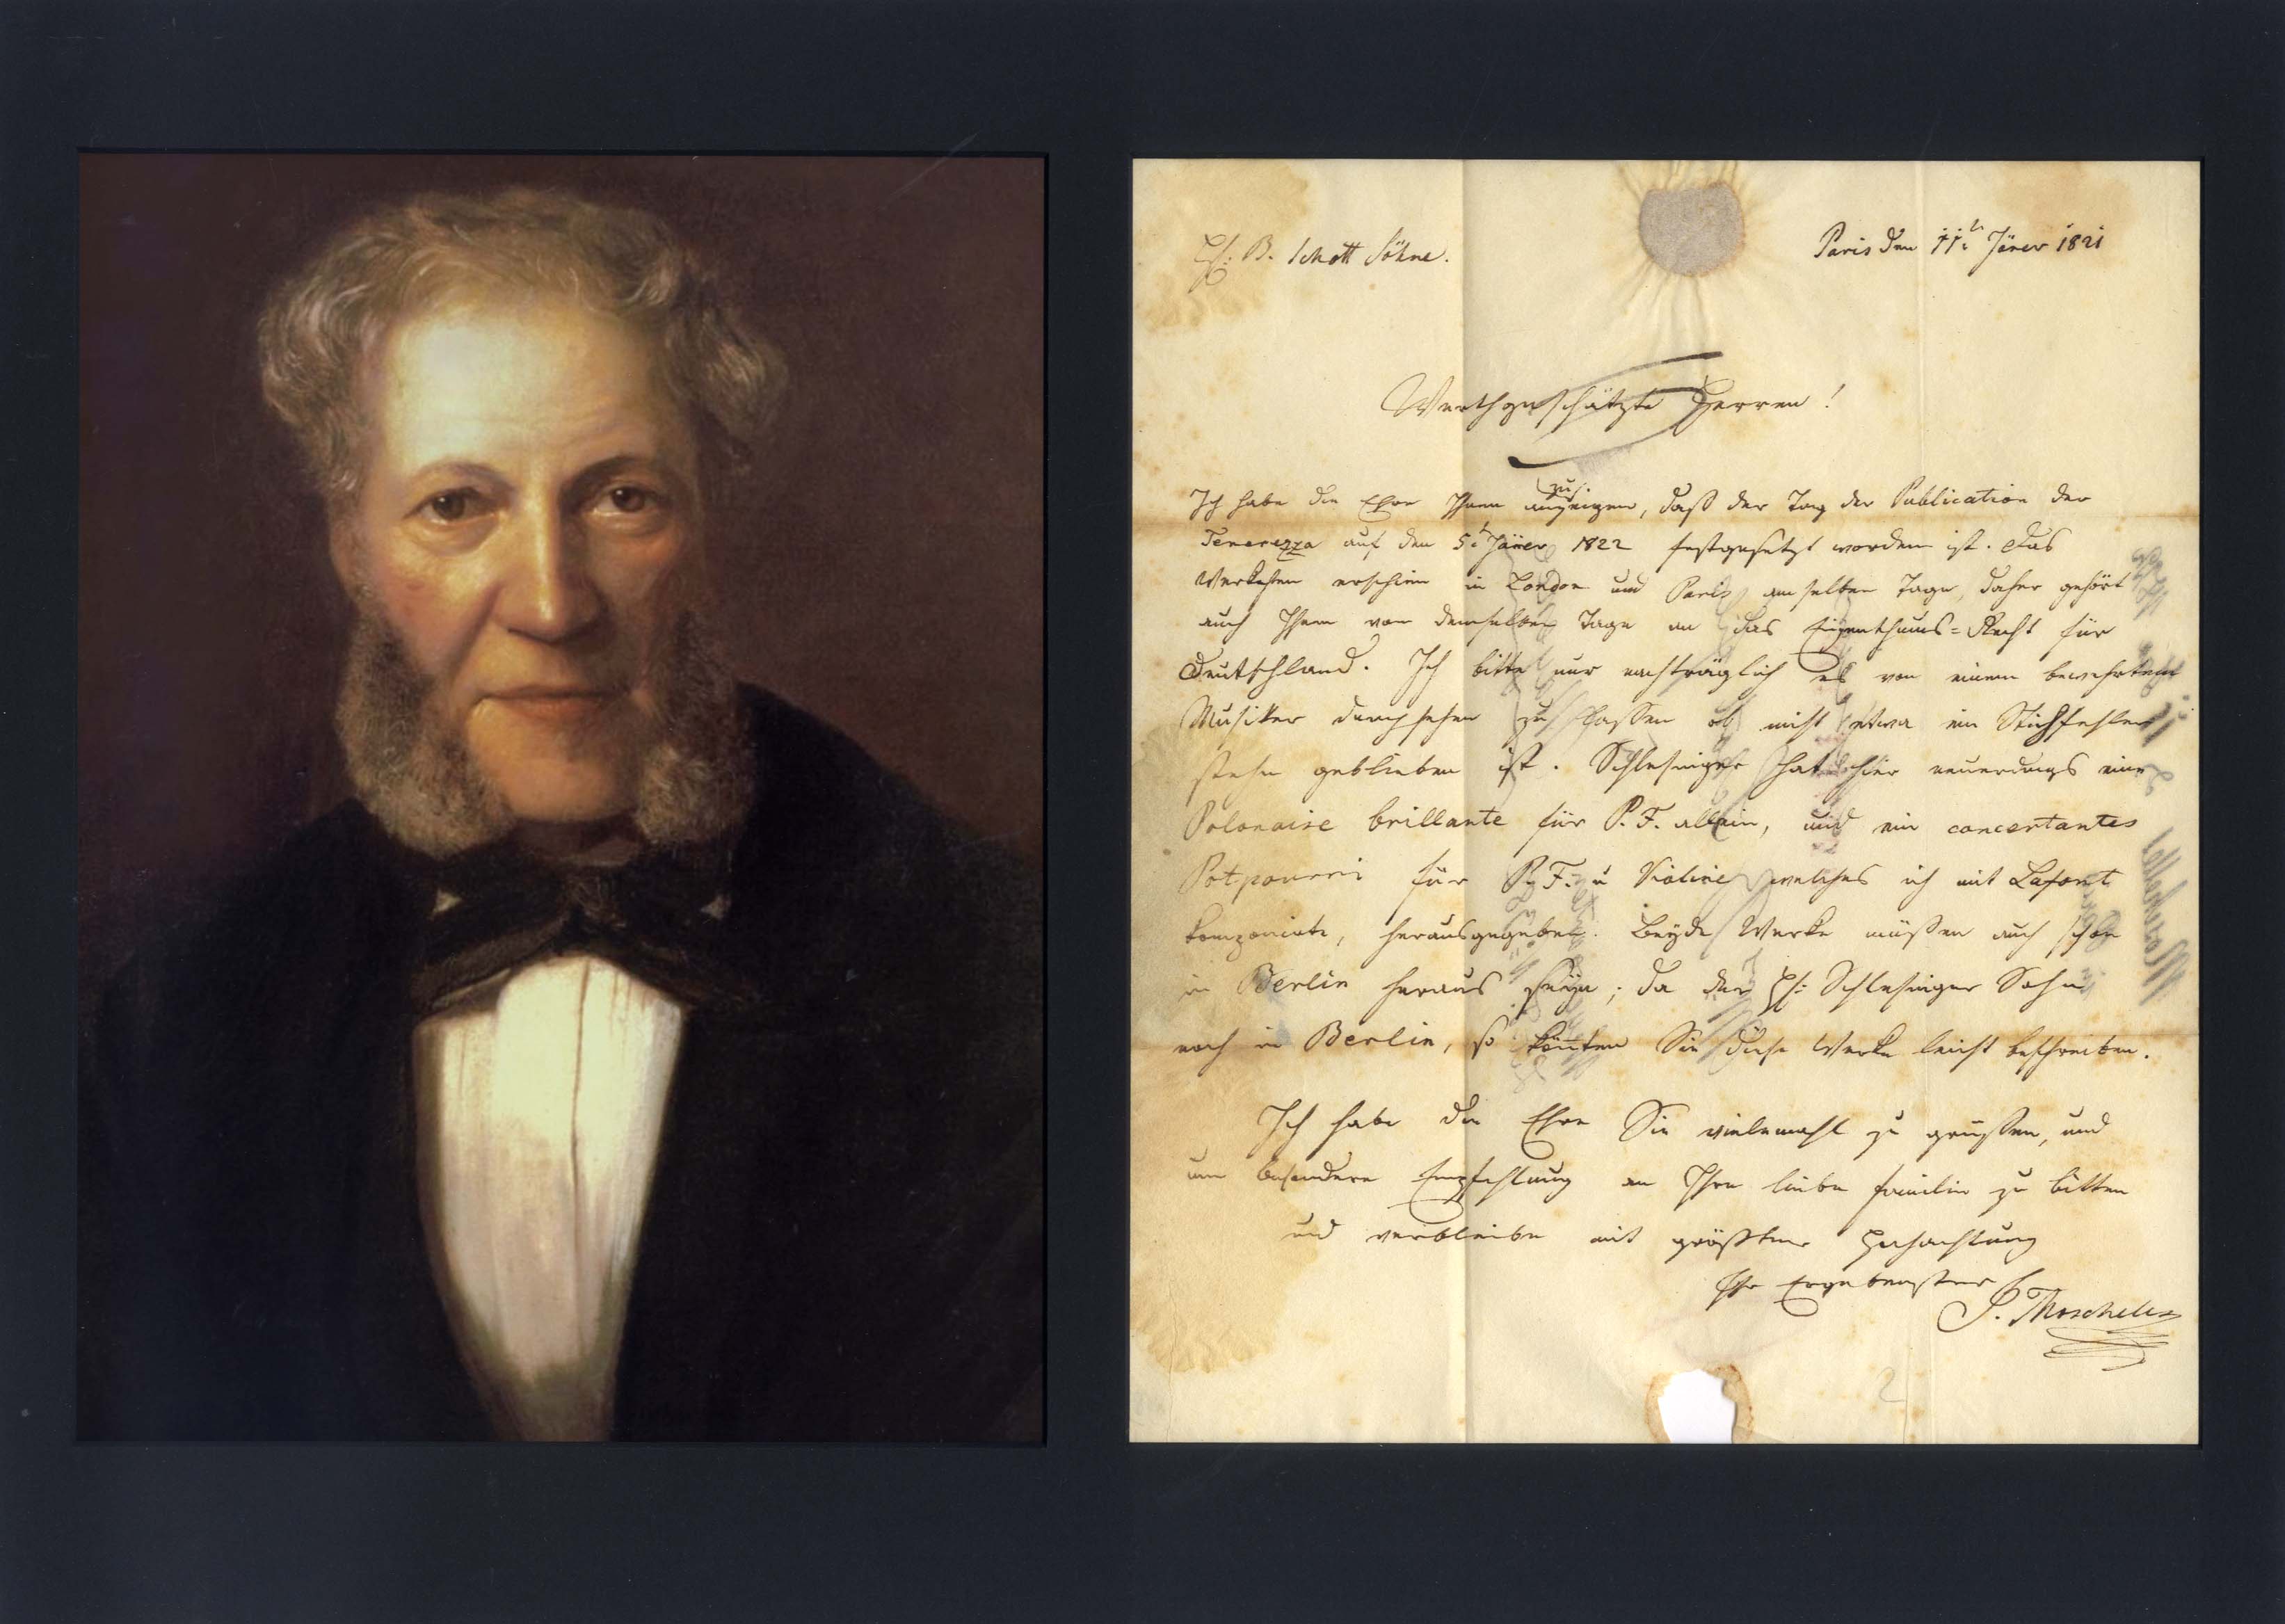 H: B. Schott Söhne.
Paris den 11t Jäner 1821
Werthgeschätzte Herren!
zu
Ich habe die Ehre Ihnen anzeigen, daß der Tag der Publication der
Tenerezza auf den 5t Jäner 1822 festgesetzt worden ist. Das
Werkchen erscheint in London und Paris am selben Tage, daher gehört
auch Ihnen von demselben Tage an das Eigenthums=Recht für
Deutschland. Ich bitte nur nachträglich es von einem bewehrten
Musiker durchsehen zu lassen ob nicht etwa ein Stichfehler
stehn geblieben ist. Schlesinger hat hier neuerdings eine
Polonaise brillante für P. F. allein, und ein concertantes
Potpourri für P. F. u Violine welches ich mit Lafont
komponirte, herausgegeben. Beyde Werke müßen auch schon
in Berlin heraus seyn; da der H: Schlesinger Sohn
noch in Berlin, so könnten Sie diese Werke leicht beschreiben.
Ich habe die Ehre Sie vielemahl zu grüßen, und
um besondere Empfehlung an Ihre liebe Familie zu bitten
und verbleibe mit größter Hochachtung
Ihr Ergebenster
J. Moscheles
2